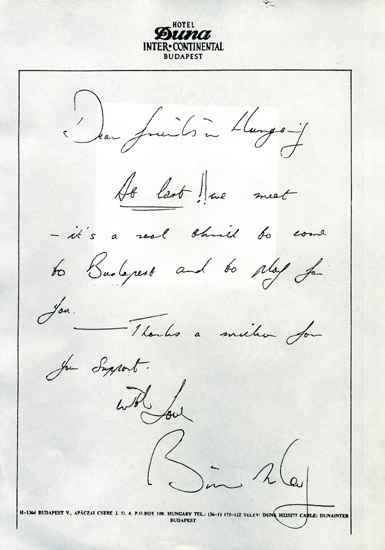 HOTEL
Duna
INTER•CONTINENTAL
BUDAPEST
Dear friends in Hungary
At last!! we meet
- it's a real thrill to come
to Budapest and to play for
you.
Thanks a million for
your support.
with love
Brian May
H-1364 BUDAPEST V., APÁCZAI CSERE J. U. 4. P.O.BOX 100. HUNGARY TEL.: CABLE: DUNAINTER
BUDAPEST